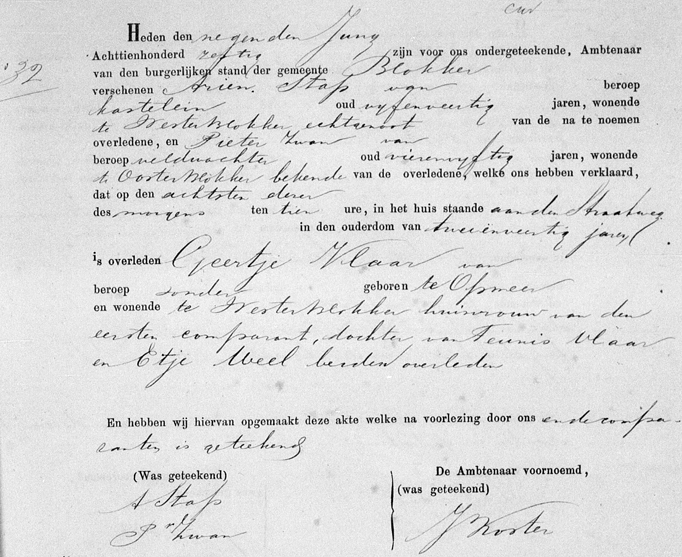 Heden den negenden Juny
Achttienhonderd zestig zijn voor ons ondergeteekende, Ambtenaar
van den burgerlijken stand der gemeente Blokker
32
verschenen Arien Stap van beroep
kastelein oud vyfenveertig jaren, wonende
te Westerblokker echtgenoot van de na te noemen
overledene, en Pieter Zwan van
beroep veldwachter oud vierenvyftig jaren, wonende
te Oosterblokker bekende van de overledene, welke ons hebben verklaard,
dat op den achtsten dezer
des morgens ten tien ure, in het huis staande aan den Straatweg
in den ouderdom van tweeenveertig jaren
is overleden Geertje Vlaar van
beroep zonder geboren te Opmeer
en wonende te Westerblokker huisvrouw van den
eersten comparant, dochter van Teunis Vlaar
en Etje Weel beiden overleden
En hebben wij hiervan opgemaakt deze akte welke na voorlezing door ons en de compa-
ranten is geteekend
(Was geteekend) De Ambtenaar voornoemd,
(was geteekend)
A Stap
Pr Zwan J Koster